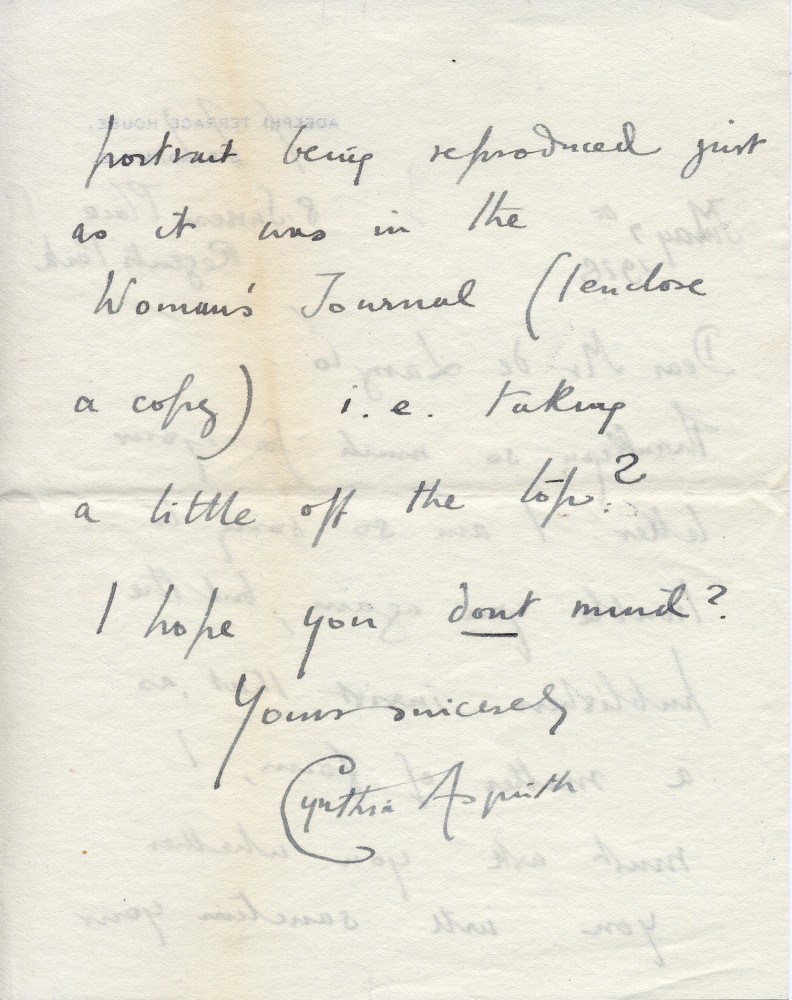 portrait being reproduced just
as it was in the
Woman's Journal (I enclose
a copy) i.e. taking
a little off the top?
I hope you dont mind?
Yours sincerely
Cynthia Asquith